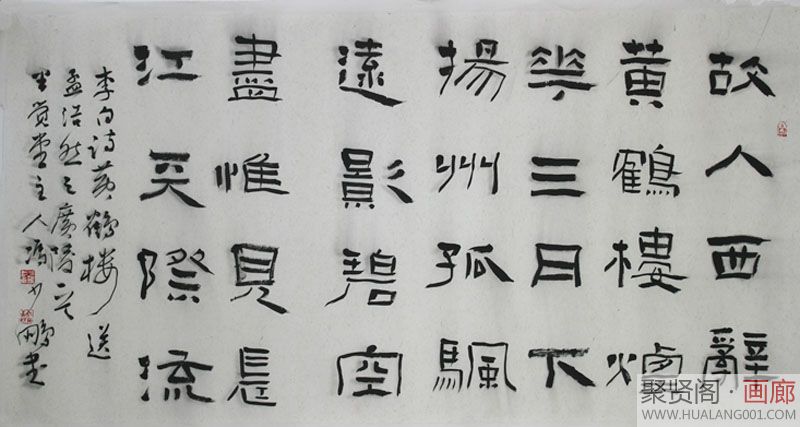 故人西辭
黃鶴樓煙
華三月下
揚州孤颿
遠影碧空
盡惟見長
江天際流
李白诗黄鹤楼送
孟浩然之廣陵
半觉堂主人冯少鹏书
聚贤阁·画廊
WWW.HUALANG001.COM